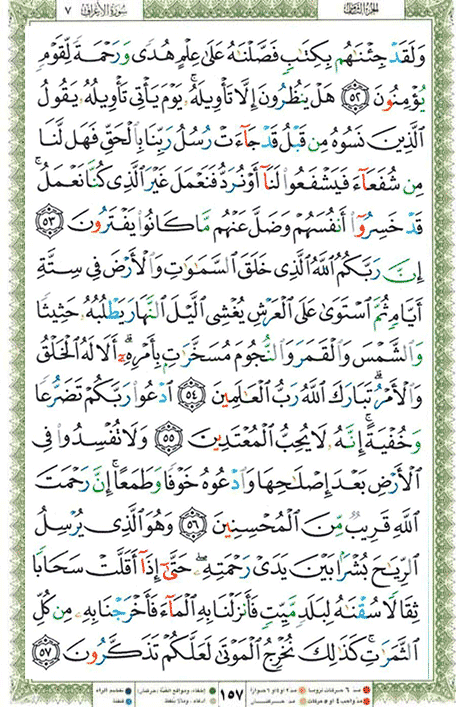 ٧ سورة الأعراف الجزء الثامن
وَلَقَدْ جِئْنَٰهُم بِكِتَٰبٍ فَصَّلْنَٰهُ عَلَىٰ عِلْمٍ هُدًى وَرَحْمَةً لِّقَوْمٍ
يُؤْمِنُونَ ٥٢ هَلْ يَنظُرُونَ إِلَّا تَأْوِيلَهُۥ ۚ يَوْمَ يَأْتِى تَأْوِيلُهُۥ يَقُولُ
ٱلَّذِينَ نَسُوهُ مِن قَبْلُ قَدْ جَآءَتْ رُسُلُ رَبِّنَا بِٱلْحَقِّ فَهَل لَّنَا
مِن شُفَعَآءَ فَيَشْفَعُوا۟ لَنَآ أَوْ نُرَدُّ فَنَعْمَلَ غَيْرَ ٱلَّذِى كُنَّا نَعْمَلُ ۚ
قَدْ خَسِرُوٓا۟ أَنفُسَهُمْ وَضَلَّ عَنْهُم مَّا كَانُوا۟ يَفْتَرُونَ ٥٣
إِنَّ رَبَّكُمُ ٱللَّهُ ٱلَّذِى خَلَقَ ٱلسَّمَٰوَٰتِ وَٱلْأَرْضَ فِى سِتَّةِ
أَيَّامٍ ثُمَّ ٱسْتَوَىٰ عَلَى ٱلْعَرْشِ يُغْشِى ٱلَّيْلَ ٱلنَّهَارَ يَطْلُبُهُۥ حَثِيثًا
وَٱلشَّمْسَ وَٱلْقَمَرَ وَٱلنُّجُومَ مُسَخَّرَٰتٍۭ بِأَمْرِهِۦٓ ۗ أَلَا لَهُ ٱلْخَلْقُ
وَٱلْأَمْرُ ۗ تَبَارَكَ ٱللَّهُ رَبُّ ٱلْعَٰلَمِينَ ٥٤ ٱدْعُوا۟ رَبَّكُمْ تَضَرُّعًا
وَخُفْيَةً ۚ إِنَّهُۥ لَا يُحِبُّ ٱلْمُعْتَدِينَ ٥٥ وَلَا تُفْسِدُوا۟ فِى
ٱلْأَرْضِ بَعْدَ إِصْلَٰحِهَا وَٱدْعُوهُ خَوْفًا وَطَمَعًا ۚ إِنَّ رَحْمَتَ
ٱللَّهِ قَرِيبٌ مِّنَ ٱلْمُحْسِنِينَ ٥٦ وَهُوَ ٱلَّذِى يُرْسِلُ
ٱلرِّيَٰحَ بُشْرًۢا بَيْنَ يَدَىْ رَحْمَتِهِۦ ۖ حَتَّىٰٓ إِذَآ أَقَلَّتْ سَحَابًا
ثِقَالًا سُقْنَٰهُ لِبَلَدٍ مَّيِّتٍ فَأَنزَلْنَا بِهِ ٱلْمَآءَ فَأَخْرَجْنَا بِهِۦ مِن كُلِّ
ٱلثَّمَرَٰتِ ۚ كَذَٰلِكَ نُخْرِجُ ٱلْمَوْتَىٰ لَعَلَّكُمْ تَذَكَّرُونَ ٥٧
١٥٧